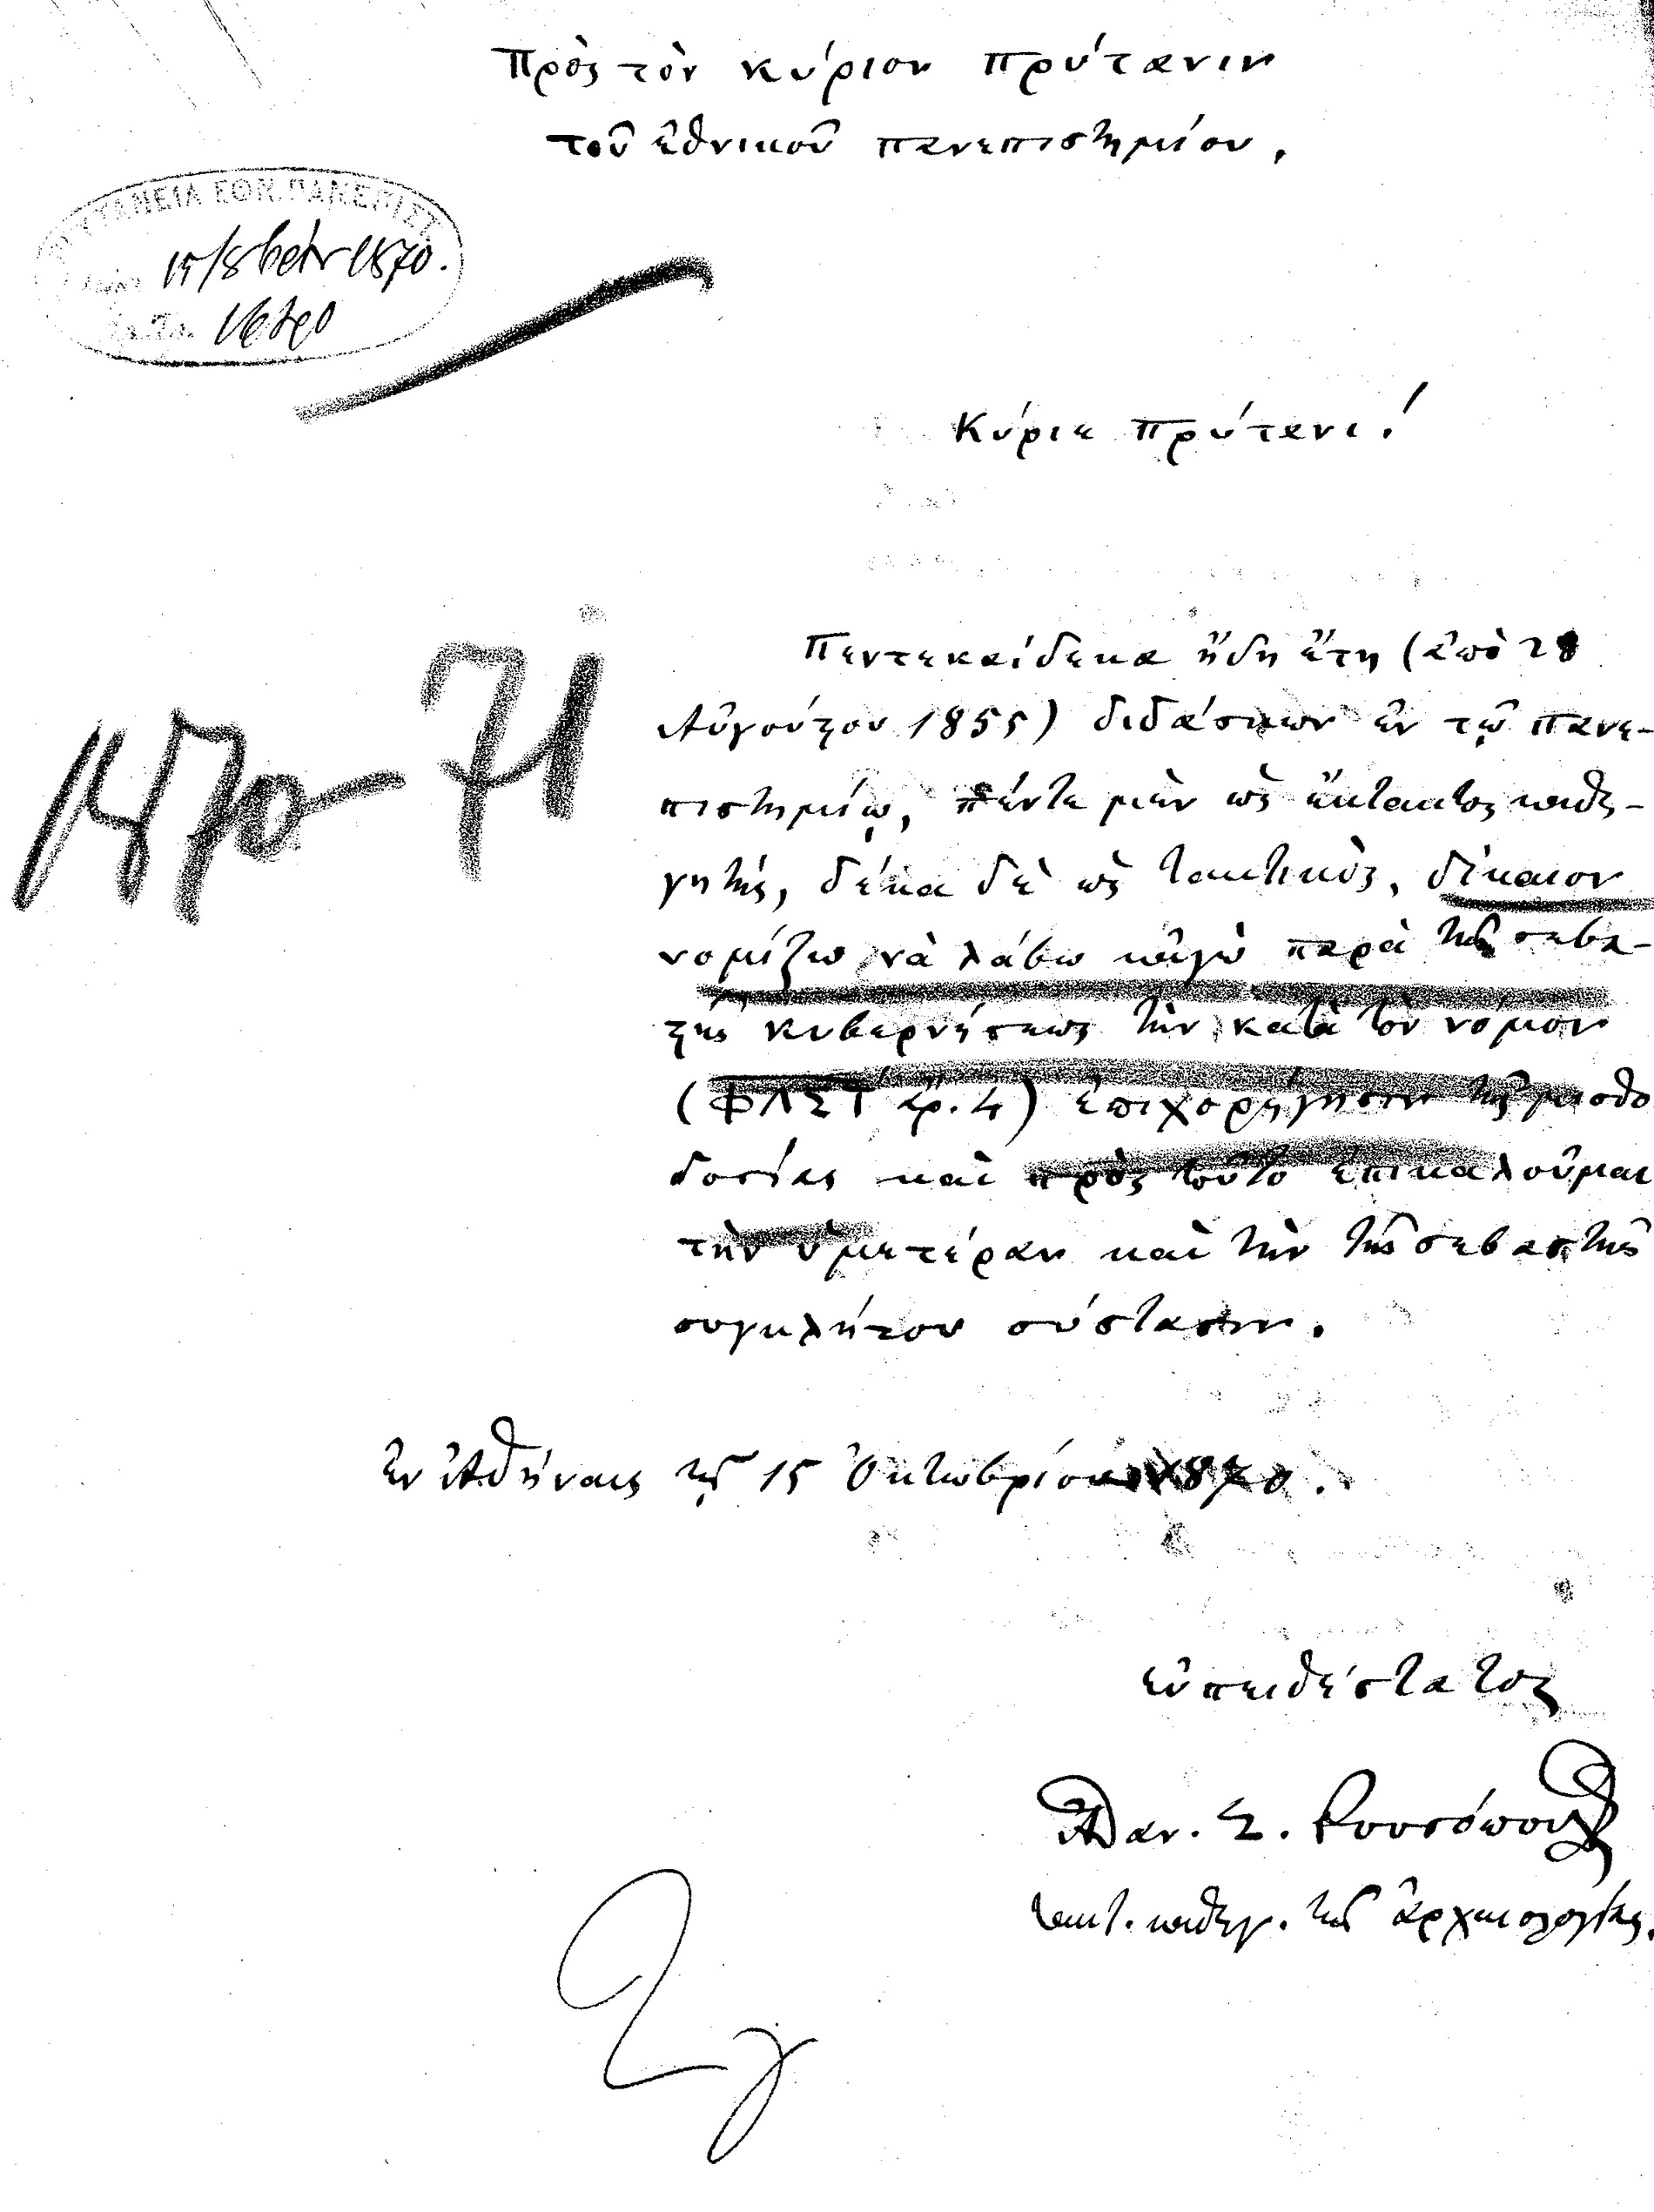 Πρὸς τὸν κύριον πρύτανιν
τοῦ ἐθνικοῦ πανεπιστημίου.
ΠΡΥΤΑΝΕΙΑ ΕΘΝ. ΠΑΝΕΠΙΣΤ.
15/8βρίου 1870.
Κύριε πρύτανι!
1870-71
Πεντεκαίδεκα ἤδη ἔτη (ἀπὸ 28
Αὐγούστου 1855) διδάσκων ἐν τῷ πανε-
πιστημίῳ, πέντε μὲν ὡς ἔκτακτος καθη-
γητής, δέκα δὲ ὡς τακτικὸς, δίκαιον
νομίζω νὰ λάβω κἀγὼ παρὰ τῆς σεβα-
στῆς κυβερνήσεως τὴν κατὰ τὸν νόμον
(ΦΛΣΤ' ἄρ. 4) ἐπιχορήγησιν τῆς μισθο
δοσίας καὶ πρὸς τοῦτο ἐπικαλοῦμαι
τὴν ὑμετέραν καὶ τὴν τῆς σεβαστῆς
συγκλήτου σύστασιν.
Ἐν Ἀθήναις τῇ 15 Ὀκτωβρίου 1870.
εὐπειθέστατος
Ἀθαν. Σ. Ῥουσόπουλος
τακτ. καθηγ. τῆς ἀρχαιολογίας.